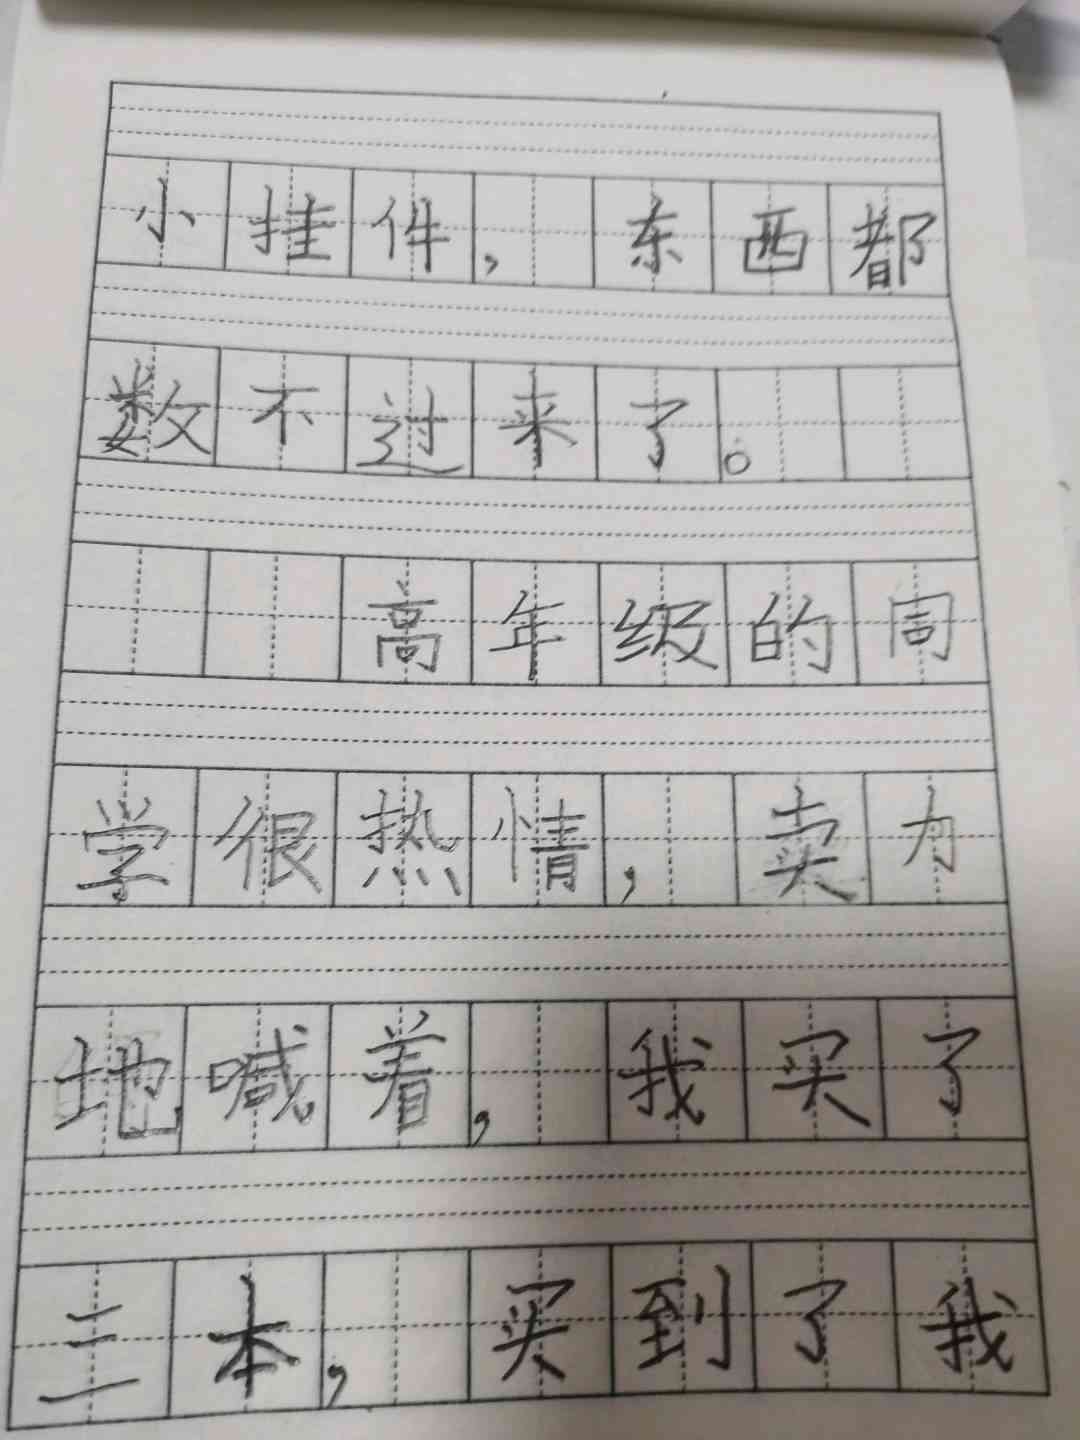 小挂件，东西都
数不过来了。
高年级的同
学很热情，卖力
地喊着，我买了
三本，买到了我